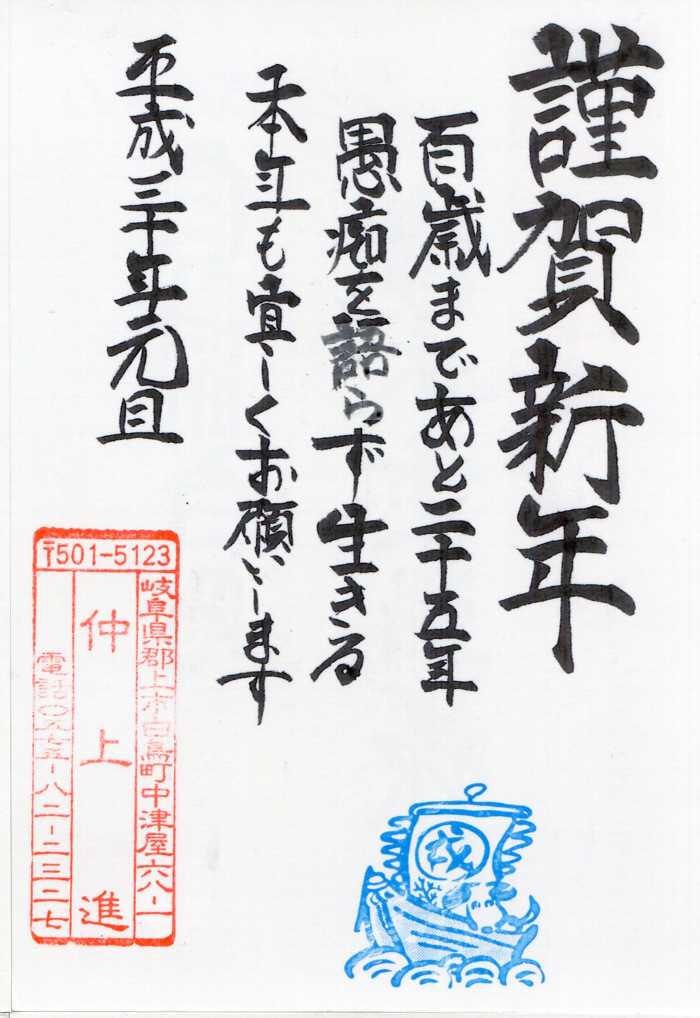 謹賀新年
百歳まであと二十五年
愚痴を語らず生きる
本年も宜しくお願いします
平成三十年元旦
〒501-5123
岐阜県郡上市白鳥町中津屋六八-一
仲上進
電話〇五七五-八二-二三二七
戌